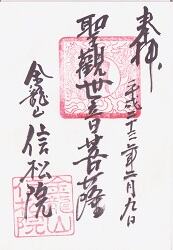 奉拝
平成二十三年二月九日
聖観世音菩薩
金龍山
信松院